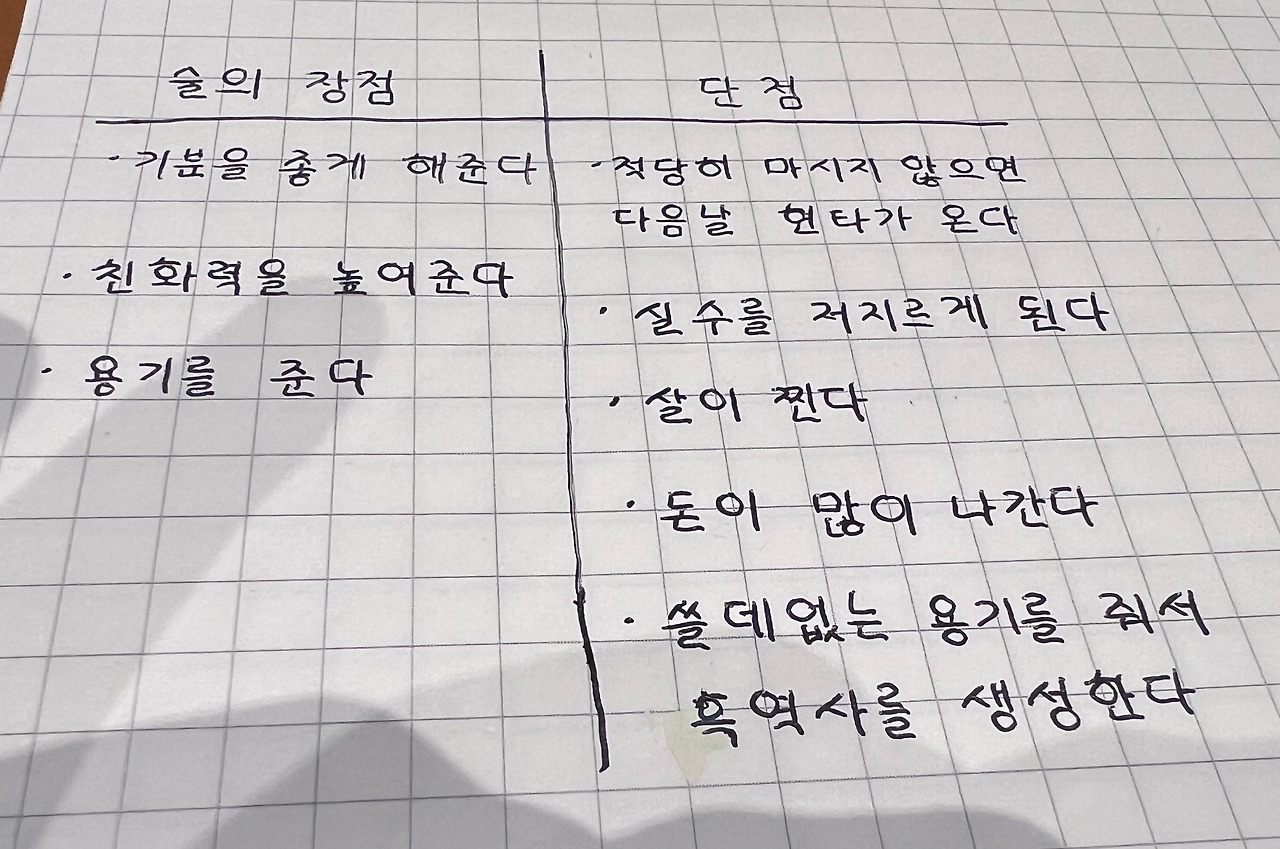 술의 장점
· 기분을 좋게 해준다
· 친화력을 높여준다
· 용기를 준다
단점
· 적당히 마시지 않으면
다음날 현타가 온다
· 실수를 저지르게 된다
· 살이 찐다
· 돈이 많이 나간다
· 쓸데없는 용기를 줘서
흑역사를 생성한다